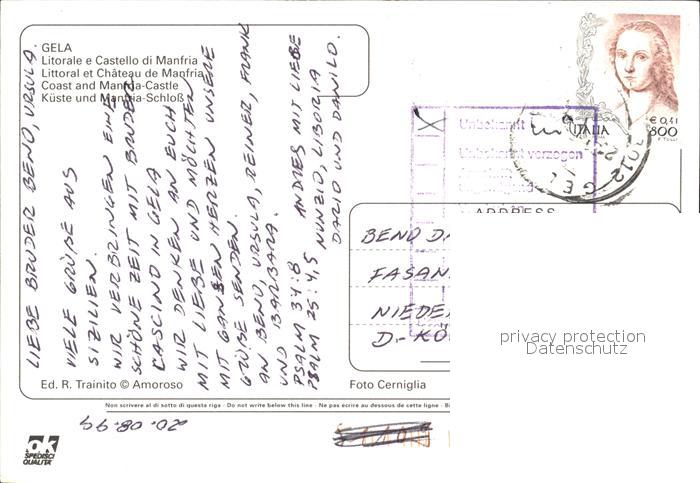 GELA
Litorale e Castello di Manfria
Littoral et Château de Manfria
Coast and Manfria-Castle
Küste und Manfria-Schloß
LIEBE BRUDER BENO, URSULA.
VIELE GRÜßE AUS
SIZILIEN.
WIR VERBRINGEN EINE
SCHÖNE ZEIT MIT BRUDER
CASCINO IN GELA
WIR DENKEN AN EUCH
MIT LIEBE UND MÖCHTEN
MIT GANßEN HERZEN UNSERE
GRÜßE SENDEN.
AN BENO, URSULA, REINER, FRANK
UND BARBARA.
PSALM 34:8
PSALM 25:4,5
ANDRES MIT LIEBE
NUNZIO, LIBORIA
DARIO UND DANILO.
€ 0,41
ITALIA
800
Unbekannt
Unbekannt verzogen
ADDRESS
BENO
FASAN
NIEDE
D.- KÖ
privacy protection
Datenschutz
Ed. R. Trainito © Amoroso
Foto Cerniglia
Non scrivere al di sotto di questa riga - Do not write below this line - Ne pas écrire au dessous de cette ligne - Bi
20.08.99
ok
SPEDISCI
QUALITÀ